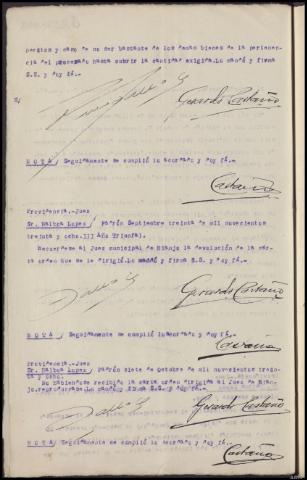 peritos y caso de no ser bastante de los demas bienes de la pertenen-
cia del procesado hasta cubrir la cantidad exigida.Lo mandó y firma
S.S. y doy fé.-
Gerardo Castaño
NOTA / Seguidamente se cumplió lo acordado y doy fé.-
Castaño
Providencia.-Juez
Sr. Maitza Lopez / padrón Septiembre treinta de mil novecientos
treinta y ocho.III Año Triunfal.
Recuerdese al Juez municipal de Rianjo la devolución de la car-
ta orden que se le dirigió.Lo mandó y firma S.S. y doy fé.-
Gerardo Castaño
NOTA / Seguidamente se cumplió lo acordado y doy fé.-
Castaño
Providencia.-Juez
Sr. Maitza Lopez / padrón siete de Octubre de mil novecientos trein-
ta y ocho.
No habiendose recibido la carta orden dirigida al Juez de Rian-
jo,reproduzcase.Lo mandó y firma S.S. y doy fé.-
Gerardo Castaño
NOTA / Seguidamente se cumplió lo acordado y doy fé.-
Castaño